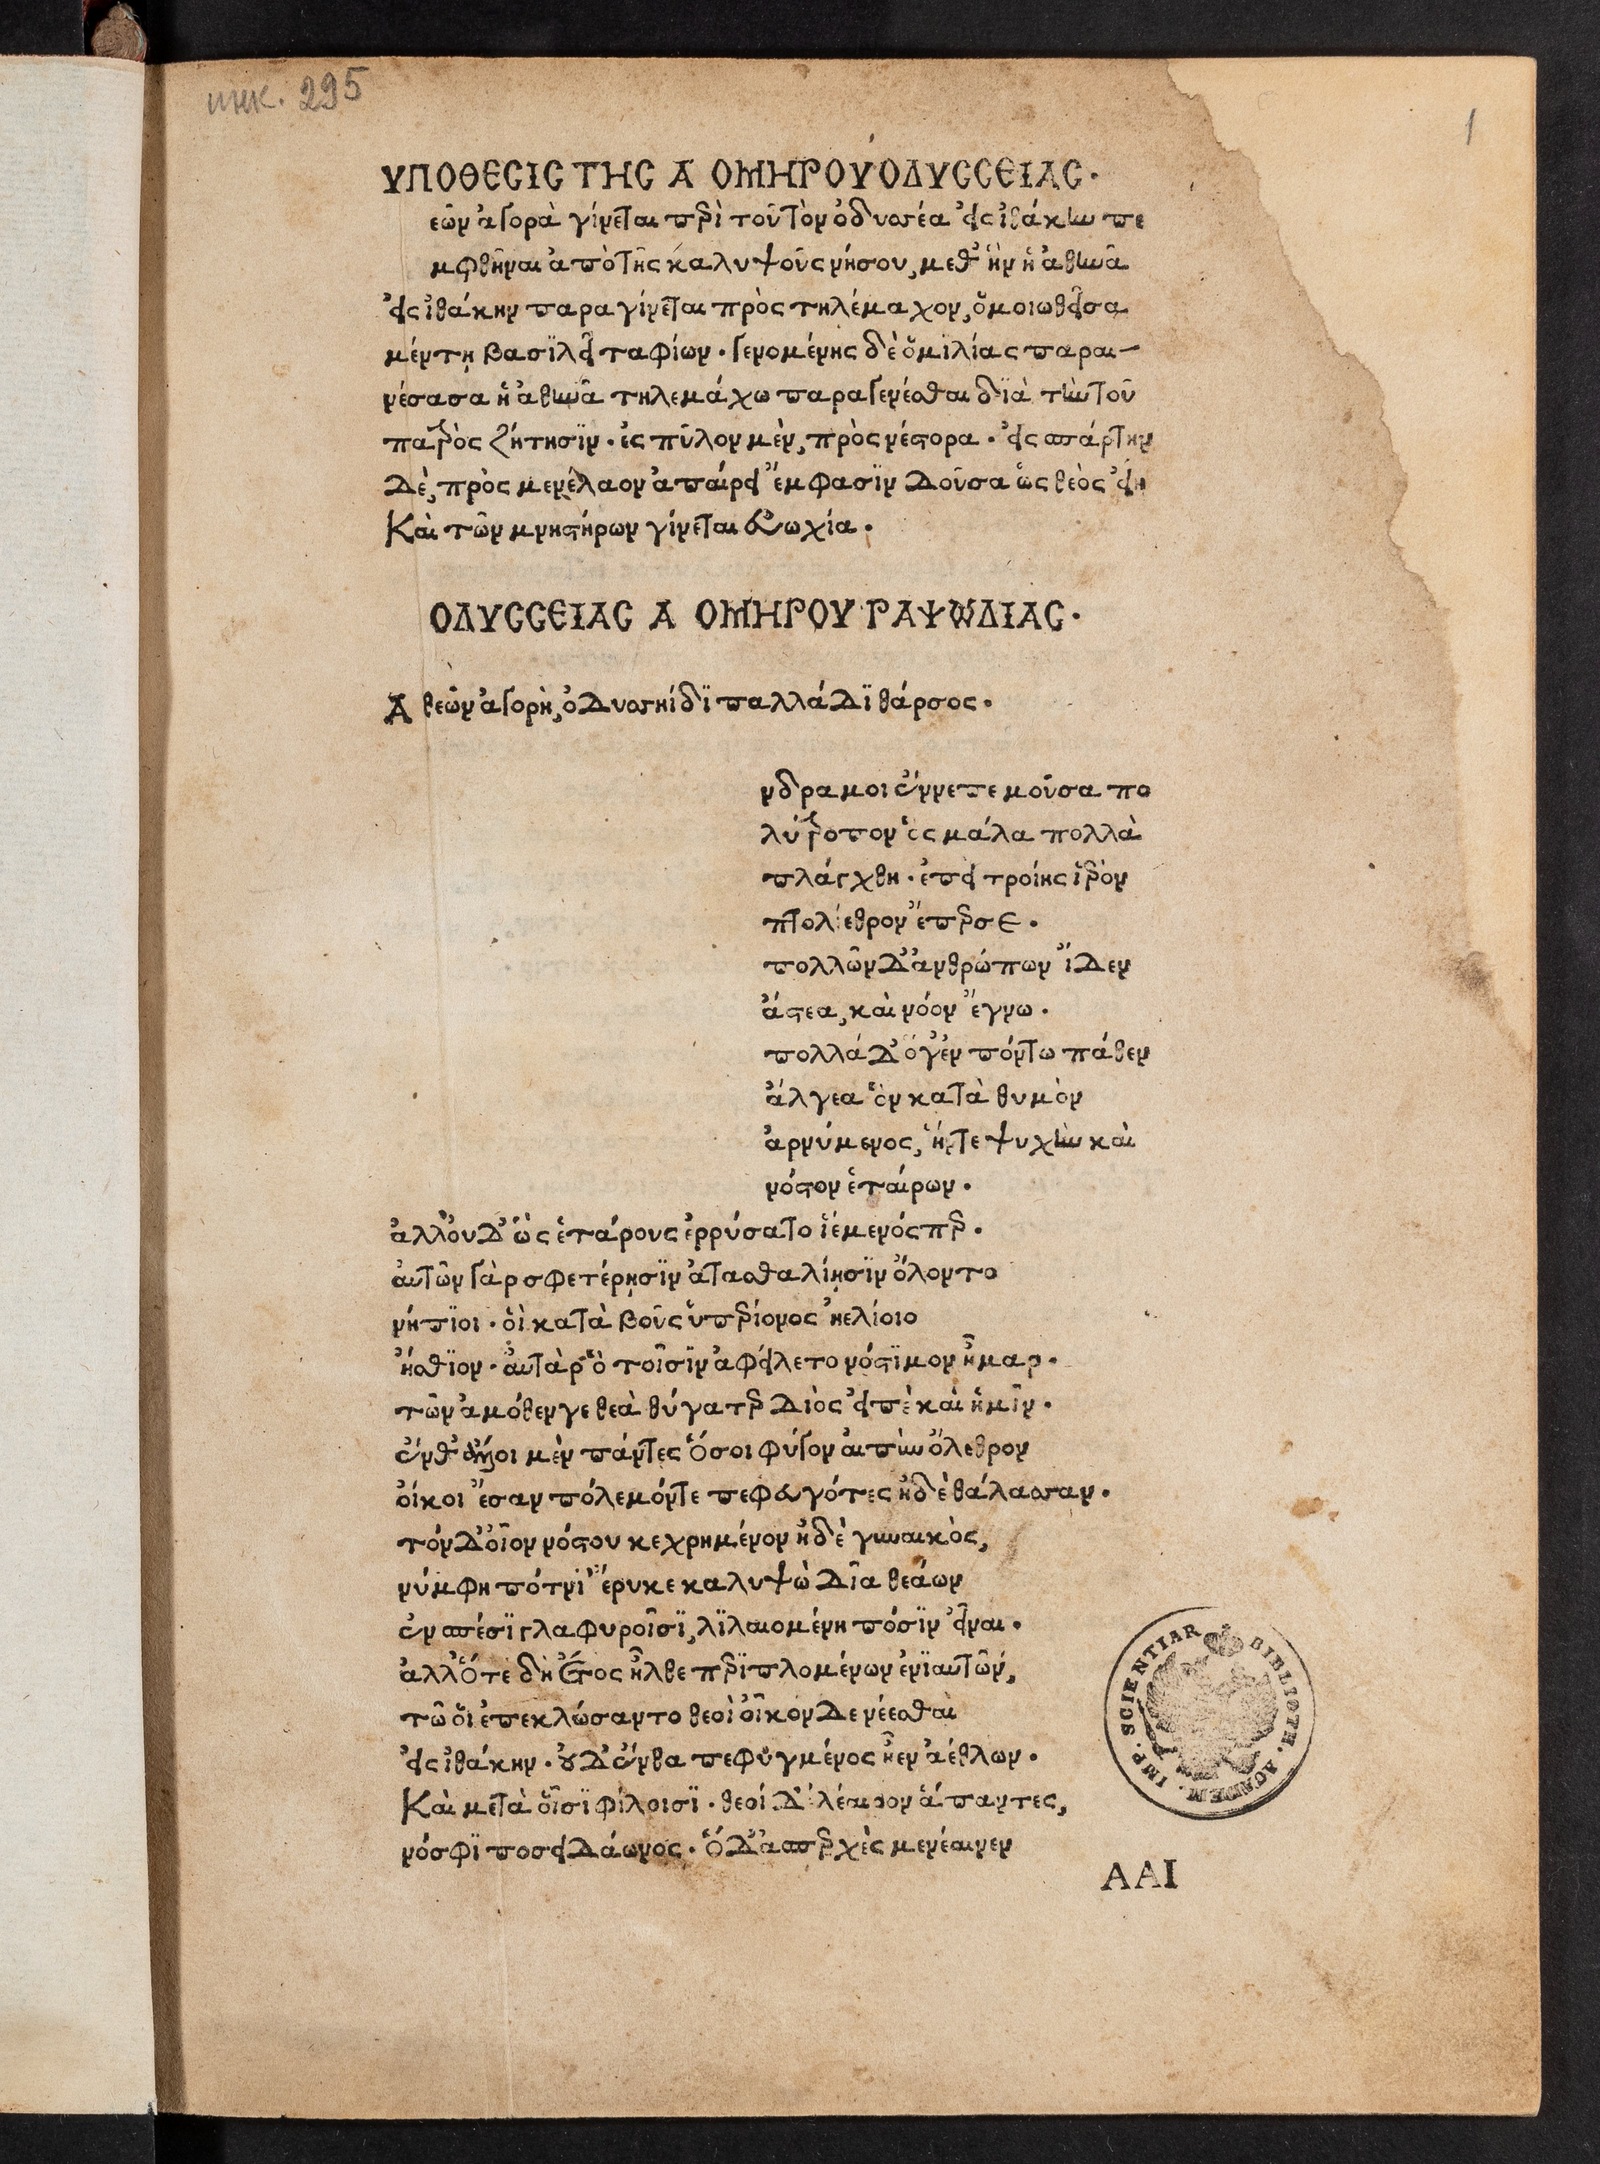 инк. 295
1
ΥΠΟΘΕϹΙϹ ΤΗϹ Α ΟΜΗΡΟΥ ΟΔΥϹϹΕΙΑϹ.
εῶν ἀγορὰ γίνεται περὶ τοῦ τὸν ὀδυσσέα εἰς ἰθάκην πε
μφθῆναι ἀπὸ τῆς καλυψοῦς νήσου, μεθ' ἣν ἡ ἀθηνᾶ
εἰς ἰθάκην παραγίνεται πρὸς τηλέμαχον, ὁμοιωθεῖσα
μέντῃ βασϊλεῖ ταφίων. γενομένης δὲ ὁμϊλίας παραι-
νέσασα ἡ ἀθηνᾶ τηλεμάχω παραγενέσθαι δϊὰ τὴν τοῦ
πατρὸς ζήτησϊν. ἐς πῦλον μὲν, πρὸς νέστορα. εἰς σπάρτην
δὲ, πρὸς μενέλαον ἀπαίρει ἔμφασϊν δοῦσα ὡς θεὸς εἴη
Καὶ τῶν μνηστήρων γίνεται εὐωχία.
ΟΔΥϹϹΕΙΑϹ Α ΟΜΗΡΟΥ ΡΑΨΩΔΙΑϹ.
Α θεῶν ἀγορὴ, ὀδυσσηίδϊ παλλάδϊ θάρσος.
νδρα μοι ἔννεπε μοῦσα πο
λύτροπον ὃς μάλα πολλὰ
πλάγχθη. ἐπεὶ τροίης ἱερὸν
πτολίεθρον ἔπερσε.
πολλῶν δ' ἀνθρώπων ἴδεν
ἄστεα, καὶ νόον ἔγνω.
πολλά δ' ὅγ' ἐν πόντω πάθεν
ἄλγεα ὃν κατὰ θυμὸν
ἀρνύμενος, ἥντε ψυχὴν καὶ
νόστον ἑταίρων.
ἀλλ' οὐδ' ὣς ἑτάρους ἐρρύσατο ἱέμενός περ.
αὐτῶν γὰρ σφετέρῃσϊν ἀτασθαλίῃσϊν ὄλοντο
νήπϊοι. οἳ κατὰ βοῦς ὑπερίονος ἠελίοιο
ἤσθϊον. αὐτὰρ ὃ τοῖσϊν ἀφείλετο νόστϊμον ἦμαρ.
τῶν ἀμόθεν γε θεὰ θύγατερ διὸς εἰπὲ καὶ ἡμῖν.
ἔνθ' ἄλλοι μὲν πάντες ὅσοι φύγον αἰπὺν ὄλεθρον
οἴκοι ἔσαν πόλεμόντε πεφευγότες ἠδὲ θάλασσαν.
τόν δ' οἶον νόστου κεχρημένον ἠδὲ γυναικὸς,
νύμφη πότνϊ' ἔρυκε καλυψὼ δῖα θεάων
ἐν σπέσϊ γλαφυροῖσϊ, λϊλαιομένη πόσϊν εἶναι.
ἀλλ' ὅτε δὴ ἔτος ἦλθε περϊπλομένων ἐνϊαυτῶν,
τῶ οἱ ἐπεκλώσαντο θεοὶ οἶκον δε νέεσθαι
εἰς ἰθάκην. οὐδ' ἔνθα πεφϋγμένος ἦεν ἀέθλων.
Καὶ μετὰ οἷσϊ φίλοισϊ. θεοί δ' ἐλέαιρον ἅπαντες,
νόσφϊ ποσειδάωνος. ὁ δ' ἀσπερχὲς μενέαινεν
ΑΑΙ
IMP. SCIENTIAR BIBLIOTH. ACADEM.